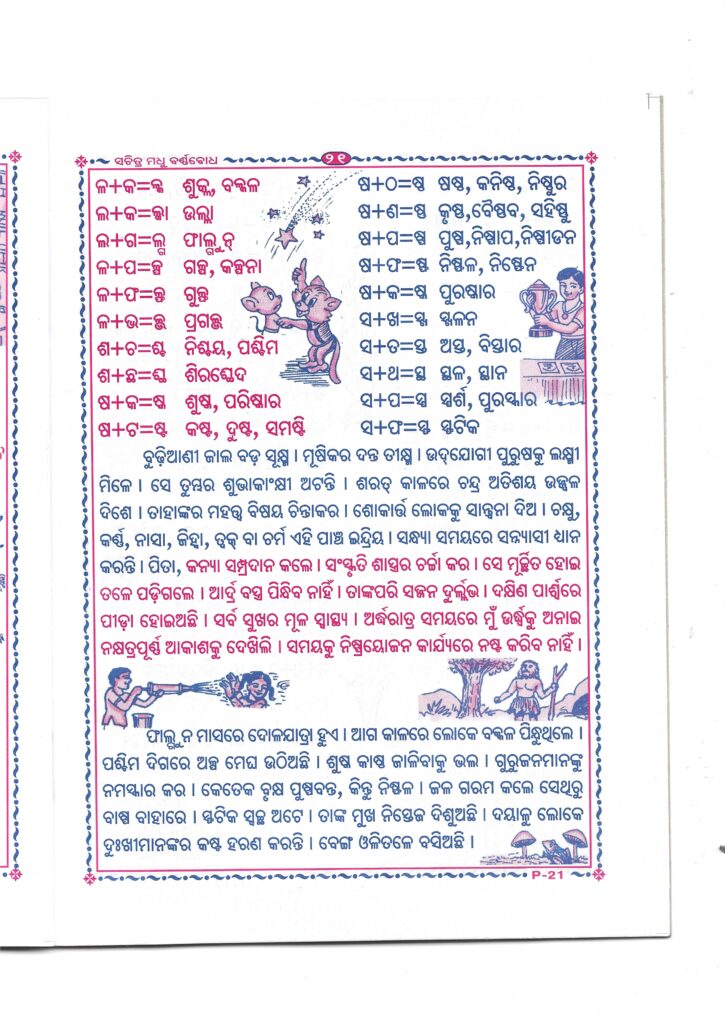 ସଚିତ୍ର ମଧୁ ବର୍ଣ୍ଣବୋଧ ୨୧
ଳ+କ=ଳ୍କ ଶୁଳ୍କ, ବଳ୍କଳ
ଲ+କ=ଲ୍କା ଉଲ୍କା
ଲ+ଗ=ଲ୍ଗ ଫାଲ୍ଗୁନ୍
ଳ+ପ=ଳ୍ପ ଗଳ୍ପ, କଳ୍ପନା
ଳ+ଫ=ଳ୍ଫ ଗୁଳ୍ଫ
ଳ+ଭ=ଳ୍ଭ ପ୍ରଗଳ୍ଭ
ଶ+ଚ=ଶ୍ଚ ନିଶ୍ଚୟ, ପଶ୍ଚିମ
ଶ+ଛ=ଶ୍ଛ ଶିରଶ୍ଛେଦ
ଷ+କ=ଷ୍କ ଶୁଷ୍କ, ପରିଷ୍କାର
ଷ+ଟ=ଷ୍ଟ କଷ୍ଟ, ଦୁଷ୍ଟ, ସମଷ୍ଟି
ଷ+ଠ=ଷ୍ଠ ଷଷ୍ଠ, କନିଷ୍ଠ, ନିଷ୍ଠୁର
ଷ+ଣ=ଷ୍ଣ କୃଷ୍ଣ,ବୈଷ୍ଣବ, ସହିଷ୍ଣୁ
ଷ+ପ=ଷ୍ପ ପୁଷ୍ପ,ନିଷ୍ପାପ,ନିଷ୍ପୀଡନ
ଷ+ଫ=ଷ୍ଫ ନିଷ୍ଫଳ, ନିଷ୍ଫେନ
ଷ+କ=ଷ୍କ ପୁରଷ୍କାର
ସ+ଖ=ସ୍ଖ ସ୍ଖଳନ
ସ+ତ=ସ୍ତ ଅସ୍ତ, ବିସ୍ତାର
ସ+ଥ=ସ୍ଥ ସ୍ଥଳ, ସ୍ଥାନ
ସ+ପ=ସ୍ପ ସ୍ପର୍ଶ, ପୁରସ୍କାର
ସ+ଫ=ସ୍ଫ ସ୍ଫଟିକ
ବୁଢ଼ିଆଣୀ ଜାଲ ବଡ଼ ସୂକ୍ଷ୍ମ । ମୂଷିକର ଦନ୍ତ ତୀକ୍ଷ୍ଣ । ଉଦ୍‌ଯୋଗୀ ପୁରୁଷକୁ ଲକ୍ଷ୍ମୀ
ମିଳେ । ସେ ତୁମ୍ଭର ଶୁଭାକାଂକ୍ଷୀ ଅଟନ୍ତି । ଶରତ୍ କାଳରେ ଚନ୍ଦ୍ର ଅତିଶୟ ଉଜ୍ଜ୍ୱଳ
ଦିଶେ । ତାହାଙ୍କର ମହତ୍ତ୍ୱ ବିଷୟ ଚିନ୍ତାକର । ଶୋକାର୍ତ୍ତ ଲୋକକୁ ସାନ୍ତ୍ୱନା ଦିଅ । ଚକ୍ଷୁ,
କର୍ଣ୍ଣ, ନାସା, ଜିହ୍ୱା, ତ୍ୱକ୍ ବା ଚର୍ମ ଏହି ପାଞ୍ଚ ଇନ୍ଦ୍ରିୟ । ସନ୍ଧ୍ୟା ସମୟରେ ସନ୍ନ୍ୟାସୀ ଧ୍ୟାନ
କରନ୍ତି । ପିତା, କନ୍ୟା ସମ୍ପ୍ରଦାନ କଲେ । ସଂସ୍କୃତି ଶାସ୍ତ୍ରର ଚର୍ଚ୍ଚା କର । ସେ ମୂର୍ଚ୍ଛିତ ହୋଇ
ତଳେ ପଡ଼ିଗଲେ । ଆର୍ଦ୍ର ବସ୍ତ୍ର ପିନ୍ଧିବ ନାହିଁ । ତାଙ୍କପରି ସଜ୍ଜନ ଦୁର୍ଲ୍ଲଭ । ଦକ୍ଷିଣ ପାର୍ଶ୍ୱରେ
ପୀଡ଼ା ହୋଇଅଛି । ସର୍ବ ସୁଖର ମୂଳ ସ୍ୱାସ୍ଥ୍ୟ । ଅର୍ଦ୍ଧରାତ୍ର ସମୟରେ ମୁଁ ଊର୍ଦ୍ଧ୍ୱକୁ ଅନାଇ
ନକ୍ଷତ୍ରପୂର୍ଣ୍ଣ ଆକାଶକୁ ଦେଖିଲି । ସମୟକୁ ନିଷ୍ପ୍ରୟୋଜନ କାର୍ଯ୍ୟରେ ନଷ୍ଟ କରିବ ନାହିଁ ।
ଫାଲ୍ଗୁନ ମାସରେ ଦୋଳଯାତ୍ରା ହୁଏ । ଆଗ କାଳରେ ଲୋକେ ବଳ୍କଳ ପିନ୍ଧୁଥିଲେ ।
ପଶ୍ଚିମ ଦିଗରେ ଅଳ୍ପ ମେଘ ଉଠିଅଛି । ଶୁଷ୍କ କାଷ୍ଠ ଜାଳିବାକୁ ଭଲ । ଗୁରୁଜନମାନଙ୍କୁ
ନମସ୍କାର କର । କେତେକ ବୃକ୍ଷ ପୁଷ୍ପବନ୍ତ, କିନ୍ତୁ ନିଷ୍ଫଳ । ଜଳ ଗରମ କଲେ ସେଥିରୁ
ବାଷ୍ପ ବାହାରେ । ସ୍ଫଟିକ ସ୍ୱଚ୍ଛ ଅଟେ । ତାଙ୍କ ମୁଖ ନିସ୍ତେଜ ଦିଶୁଅଛି । ଦୟାଳୁ ଲୋକେ
ଦୁଃଖୀମାନଙ୍କର କଷ୍ଟ ହରଣ କରନ୍ତି । ବେଙ୍ଗ ଓଳିତଳେ ବସିଅଛି ।
P-21